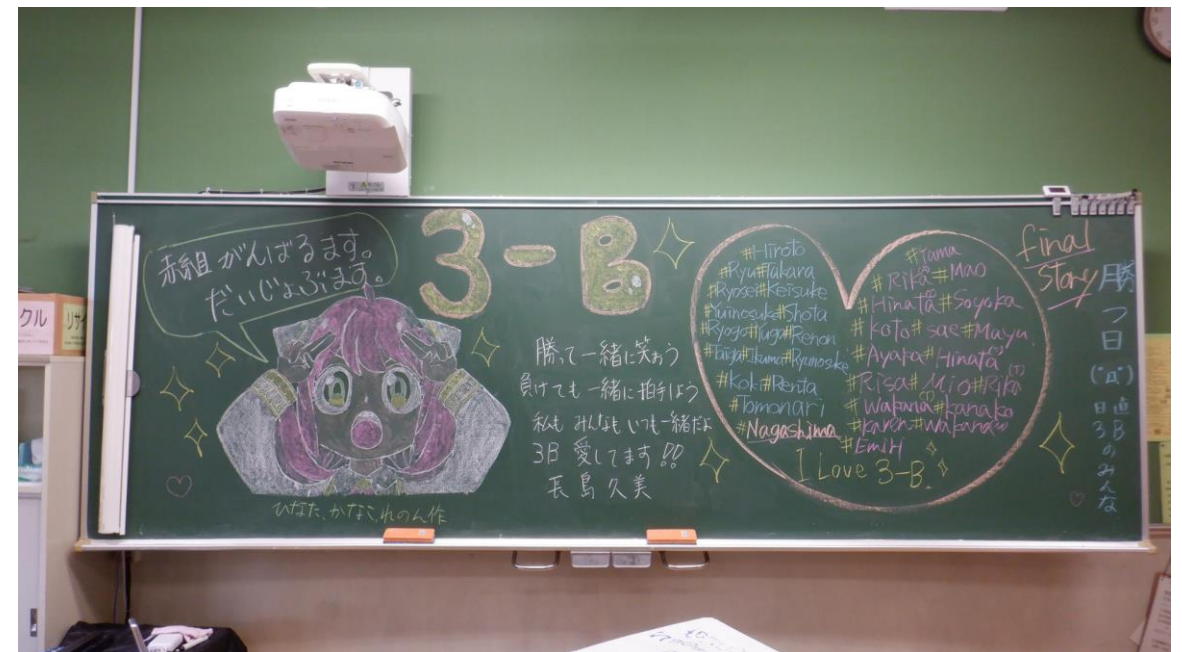 赤組がんばるます。
だいじょぶます。
3-B
ひなた、かなこ、れのん作
勝って一緒に笑おう
負けても一緒に拍手しよう
私も みんなも いつも一緒だよ
3B 愛してます!!
長島久美
#Hiroto
#Ryu#Takara
#Ryosei#Keisuke
#Yuinosuke#Shota
#Ryogo#Yuga#Renon
#Taiga#Ikuma#Ryunosuke
#Koki#Renta
#Tomonari
#Nagashima
#Tama
#Rika#Mao
#Hinata#Soyoka
#koto#sae#Mayu
#Ayaka#Hinata
#Risa#Mio#Rika
#Wakana#kanako
#karen#Wakana
#EmiH
I Love 3-B.
final
story
勝つ日
日直
3Bのみんな
クル
リサイ